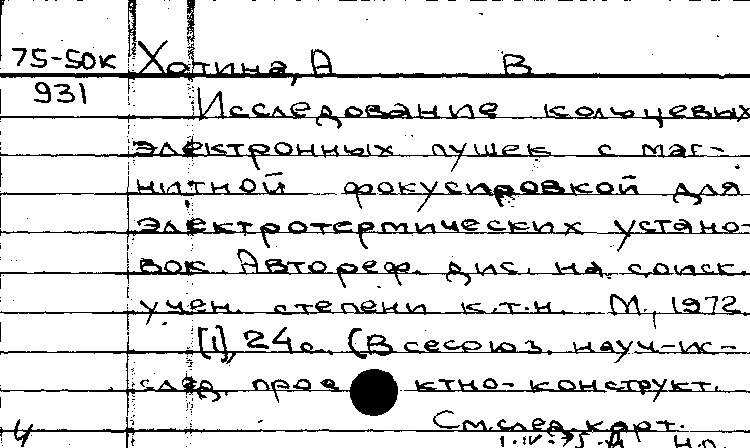 75-50к Хотина, А В
931
Исследование кольцевых
электронных пушек с маг-
нитной фокусировкой для
электротермических устано-
вок. Автореф. дис. на соиск.
учен. степени к.т.н. М., 1972.
[1], 24с. (Всесоюз. науч-ис-
след. прое ктно-конструкт.
См.след.карт.
4